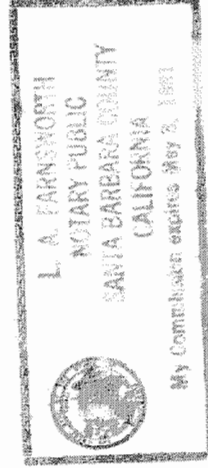 L. A. FARNSWORTH
NOTARY PUBLIC
SANTA BARBARA COUNTY
CALIFORNIA
My Commission expires May 3,